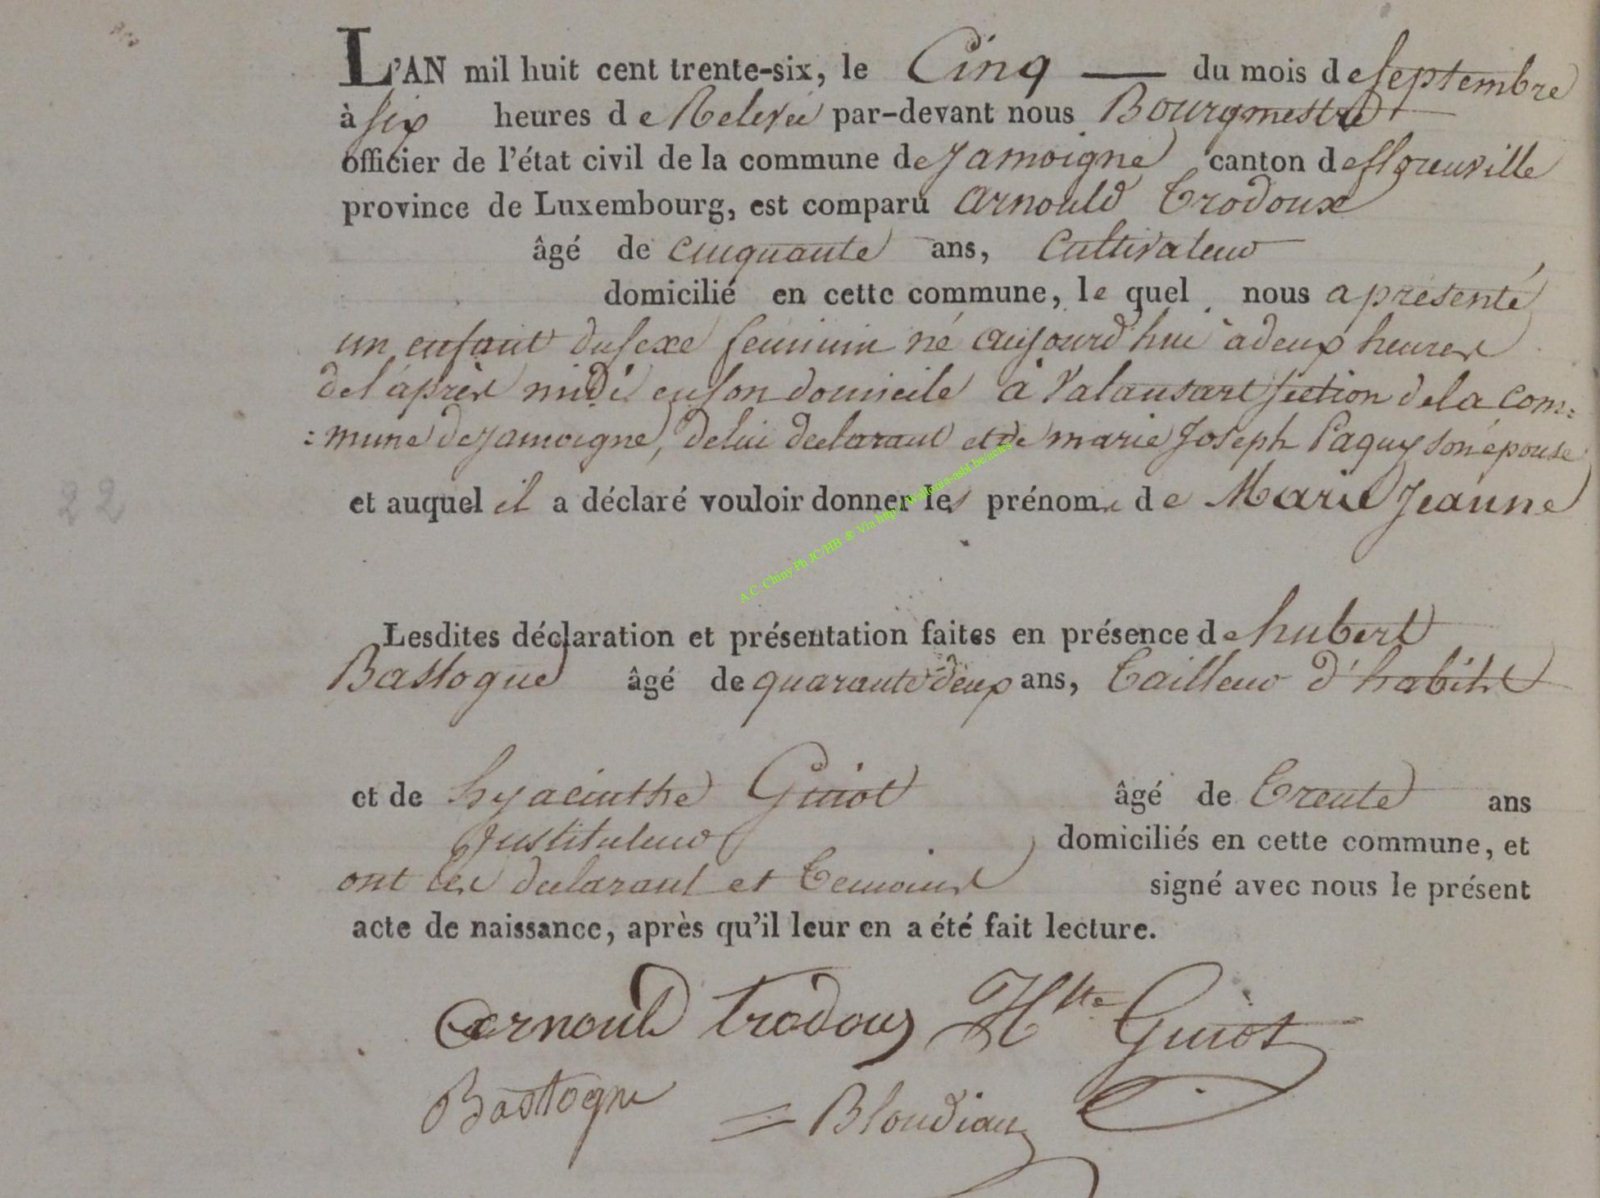 L'AN mil huit cent trente-six, le Cinq — du mois de septembre
à six heures de Relevée par-devant nous Bourgmestre
officier de l'état civil de la commune de Jamoigne canton de florenville
province de Luxembourg, est comparu Arnould Trodoux
âgé de cinquante ans, Cultivateur
domicilié en cette commune, le quel nous a présenté
un enfant du sexe feminin né aujourd'hui à deux heures
de l'après midi en son domicile à Valansart section de la com=
=mune de Jamoigne, de lui declarant et de marie Joseph Paquy son épouse
22
et auquel il a déclaré vouloir donner les prénoms de Marie Jeanne
Lesdites déclaration et présentation faites en présence de hubert
Bastogne âgé de quarante deux ans, tailleur d'habits
et de hyacinthe Guiot âgé de trente ans
Instituteur domiciliés en cette commune, et
ont les declarant et temoins signé avec nous le présent
acte de naissance, après qu'il leur en a été fait lecture.
Arnould Trodoux Hte Guiot
Bastogne = Blondiau